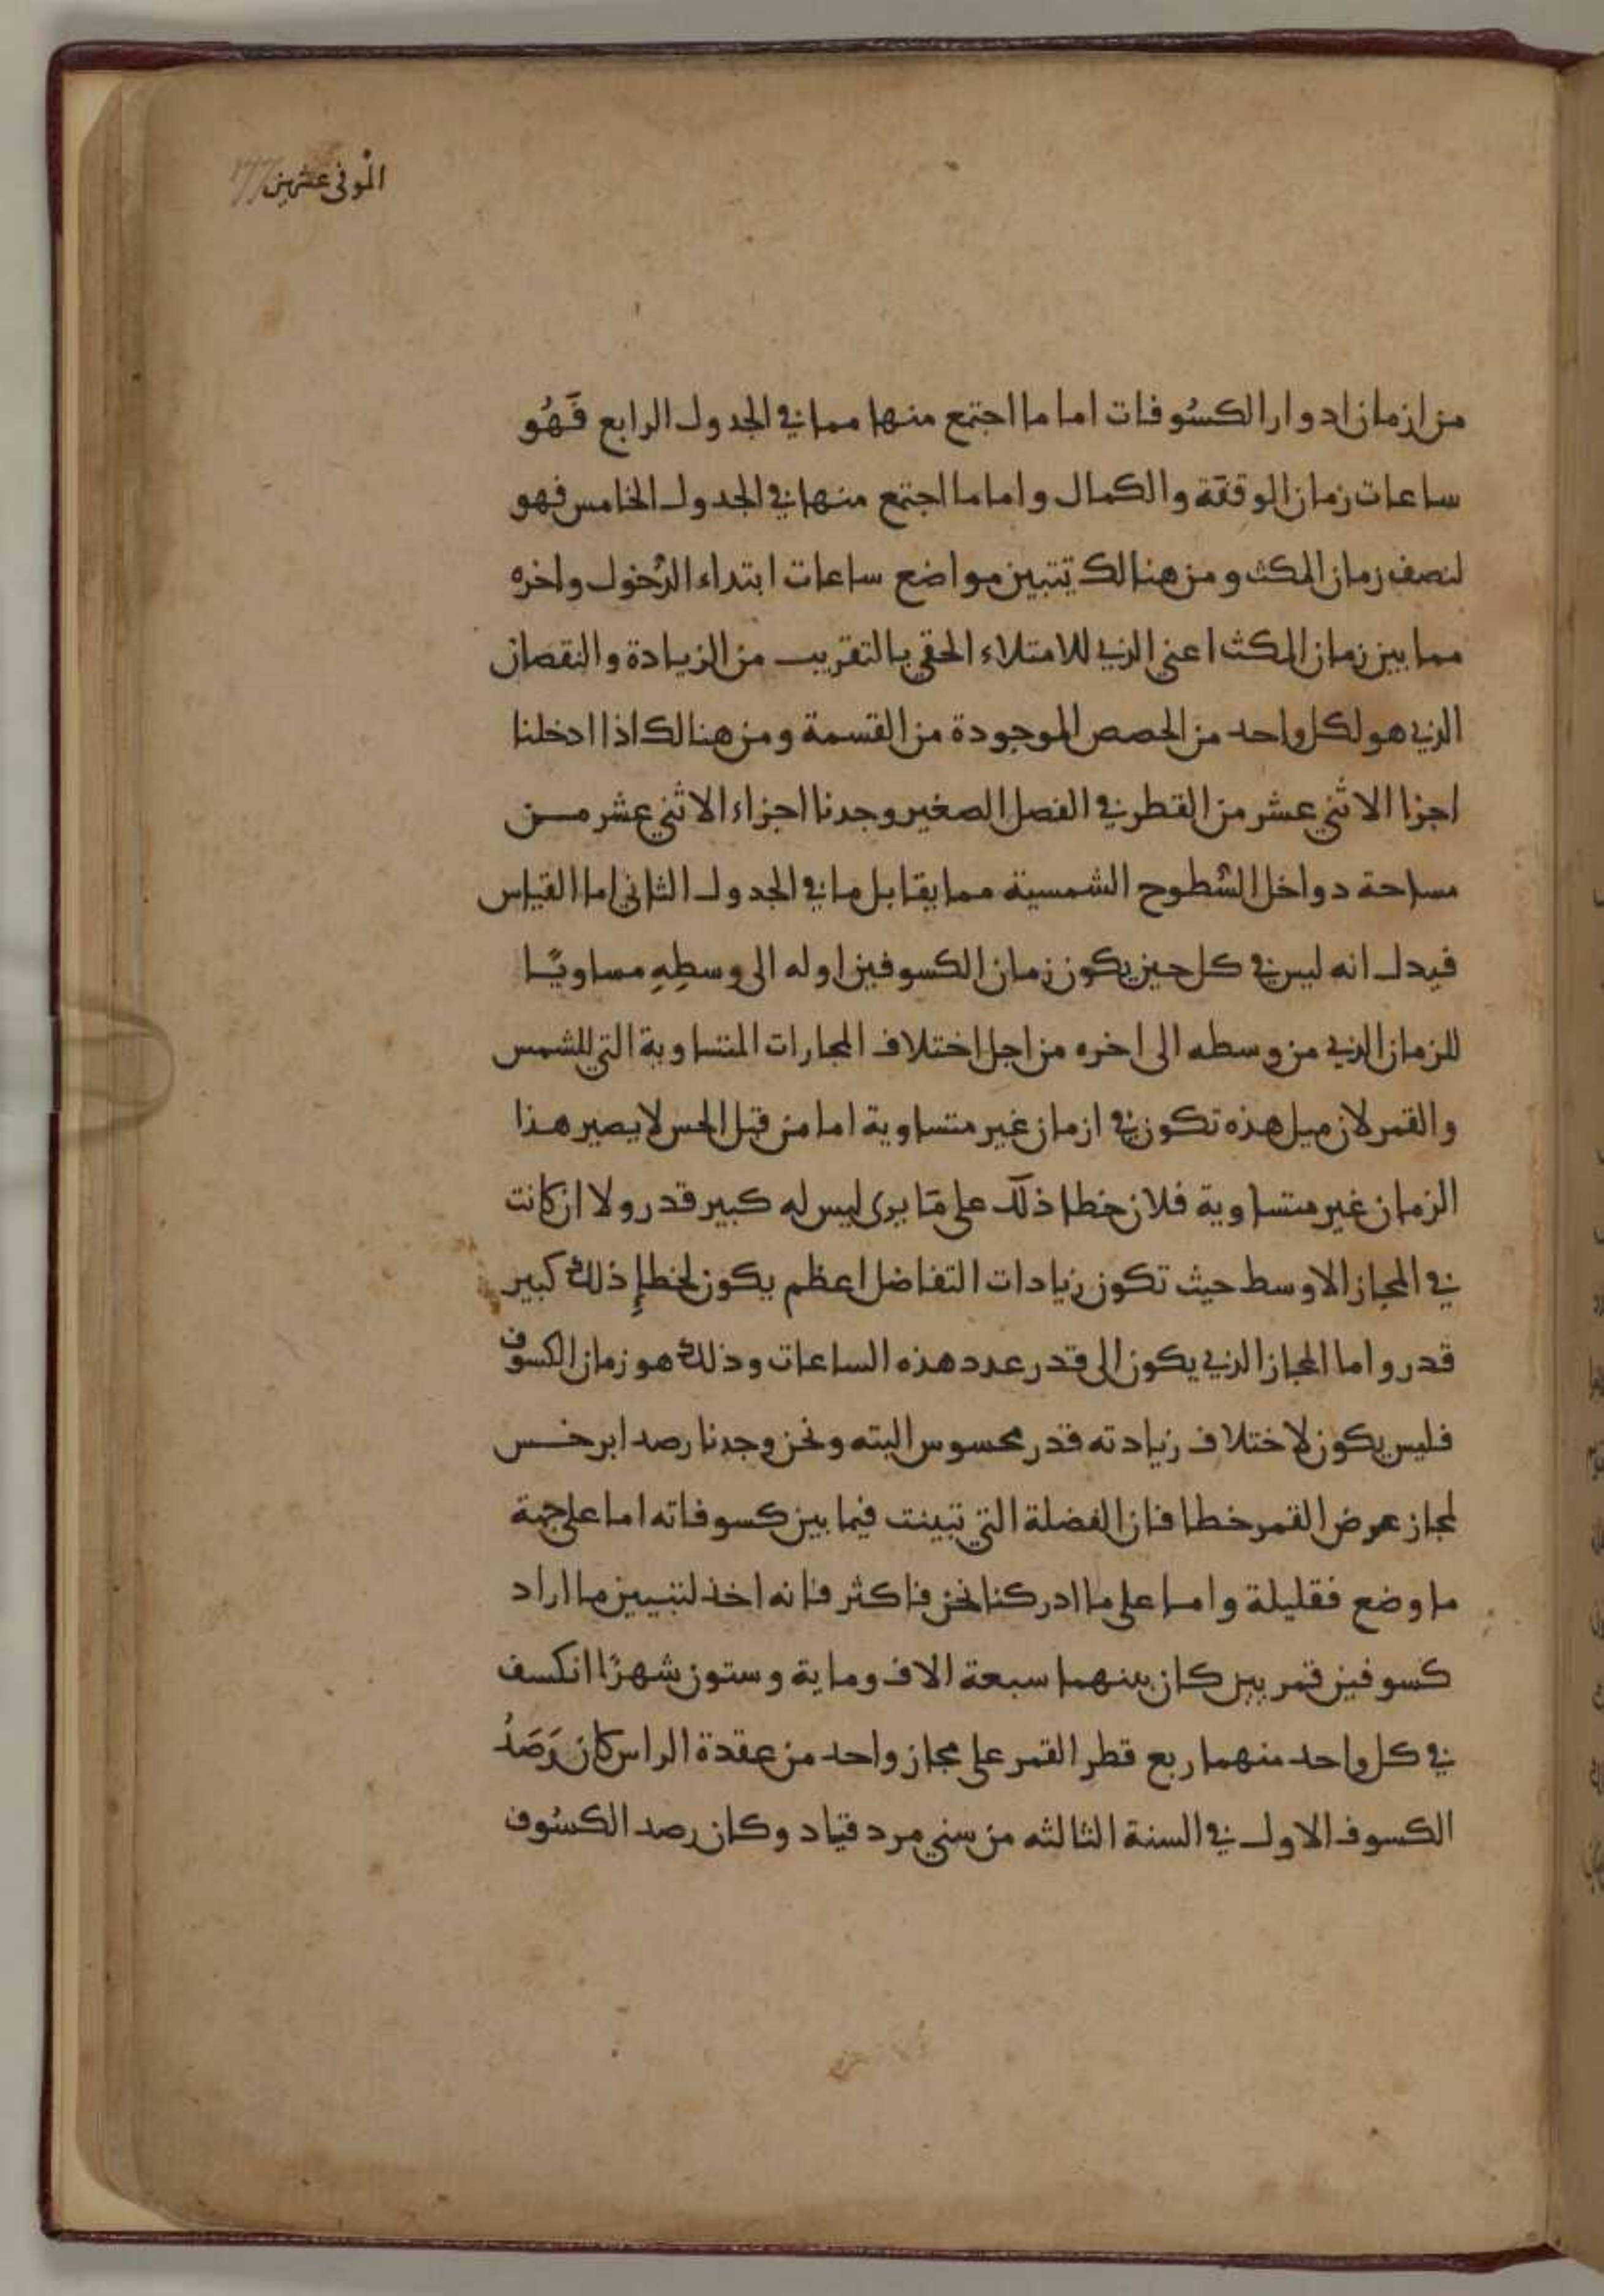 الموفى عشرين
من ازمان ادوار الكسُوفات اما ما اجتمع منها مما في الجدول الرابع فَهُو
ساعات زمان الوقفة والكمال واما ما اجتمع منها في الجدول الخامس فهو
لنصف زمان المكث ومن هنالك تتبين مواضع ساعات ابتداء الدُخول واخره
مما بين زمان المكث اعني الذي للامتلاء الحقي بالتقريب من الزيادة والنقصان
الذي هو لكل واحد من الحصص الموجودة من القسمة ومن هنالك اذا ادخلنا
اجزا الاثني عشر من القطر في الفصل الصغير وجدنا اجزاء الاثني عشر مــن
مساحة دواخل السُطوح الشمسية مما يقابل ما في الجدول الثاني اما القياس
فيدل انه ليس في كل حين يكون زمان الكسوف من اوله الى وسطِهِ مساويًا
للزمان الذي من وسطه الى اخره من اجل اختلاف المجازات المتساوية التي للشمس
والقمر لان ميل هذه تكون في ازمان غير متساوية اما من قبل الحس لا يصير هذا
الزمان غير متساوية فلان خطا ذلك على مَا يرى ليس له كبير قدر ولا ان كانت
في المجاز الاوسط حيث تكون زيادات التفاضل اعظم يكون لخطإِ ذلك كبير
قدر واما المجاز الذي يكون الى قدر عدد هذه الساعات وذلك هو زمان الكسوف
فليس يكون لاختلاف زيادته قدر محسوس البته ونحن وجدنا رصد ابرخــس
لمجاز عرض القمر خطا فان الفضلة التي تبينت فيما بين كسوفاته اما على جهة
ما وضع فقليلة واما على ما ادركنا نحن فاكثر فانه اخذ لتبيين ما اراد
كسوفين قمريين كان بينهما سبعة الاف وماية وستون شهرًا انكسف
في كل واحد منهما ربع قطر القمر على مجاز واحد من عقدة الراس كان رَصَدُ
الكسوف الاول في السنة الثالثه من سني مردقياد وكان رصد الكسُوف